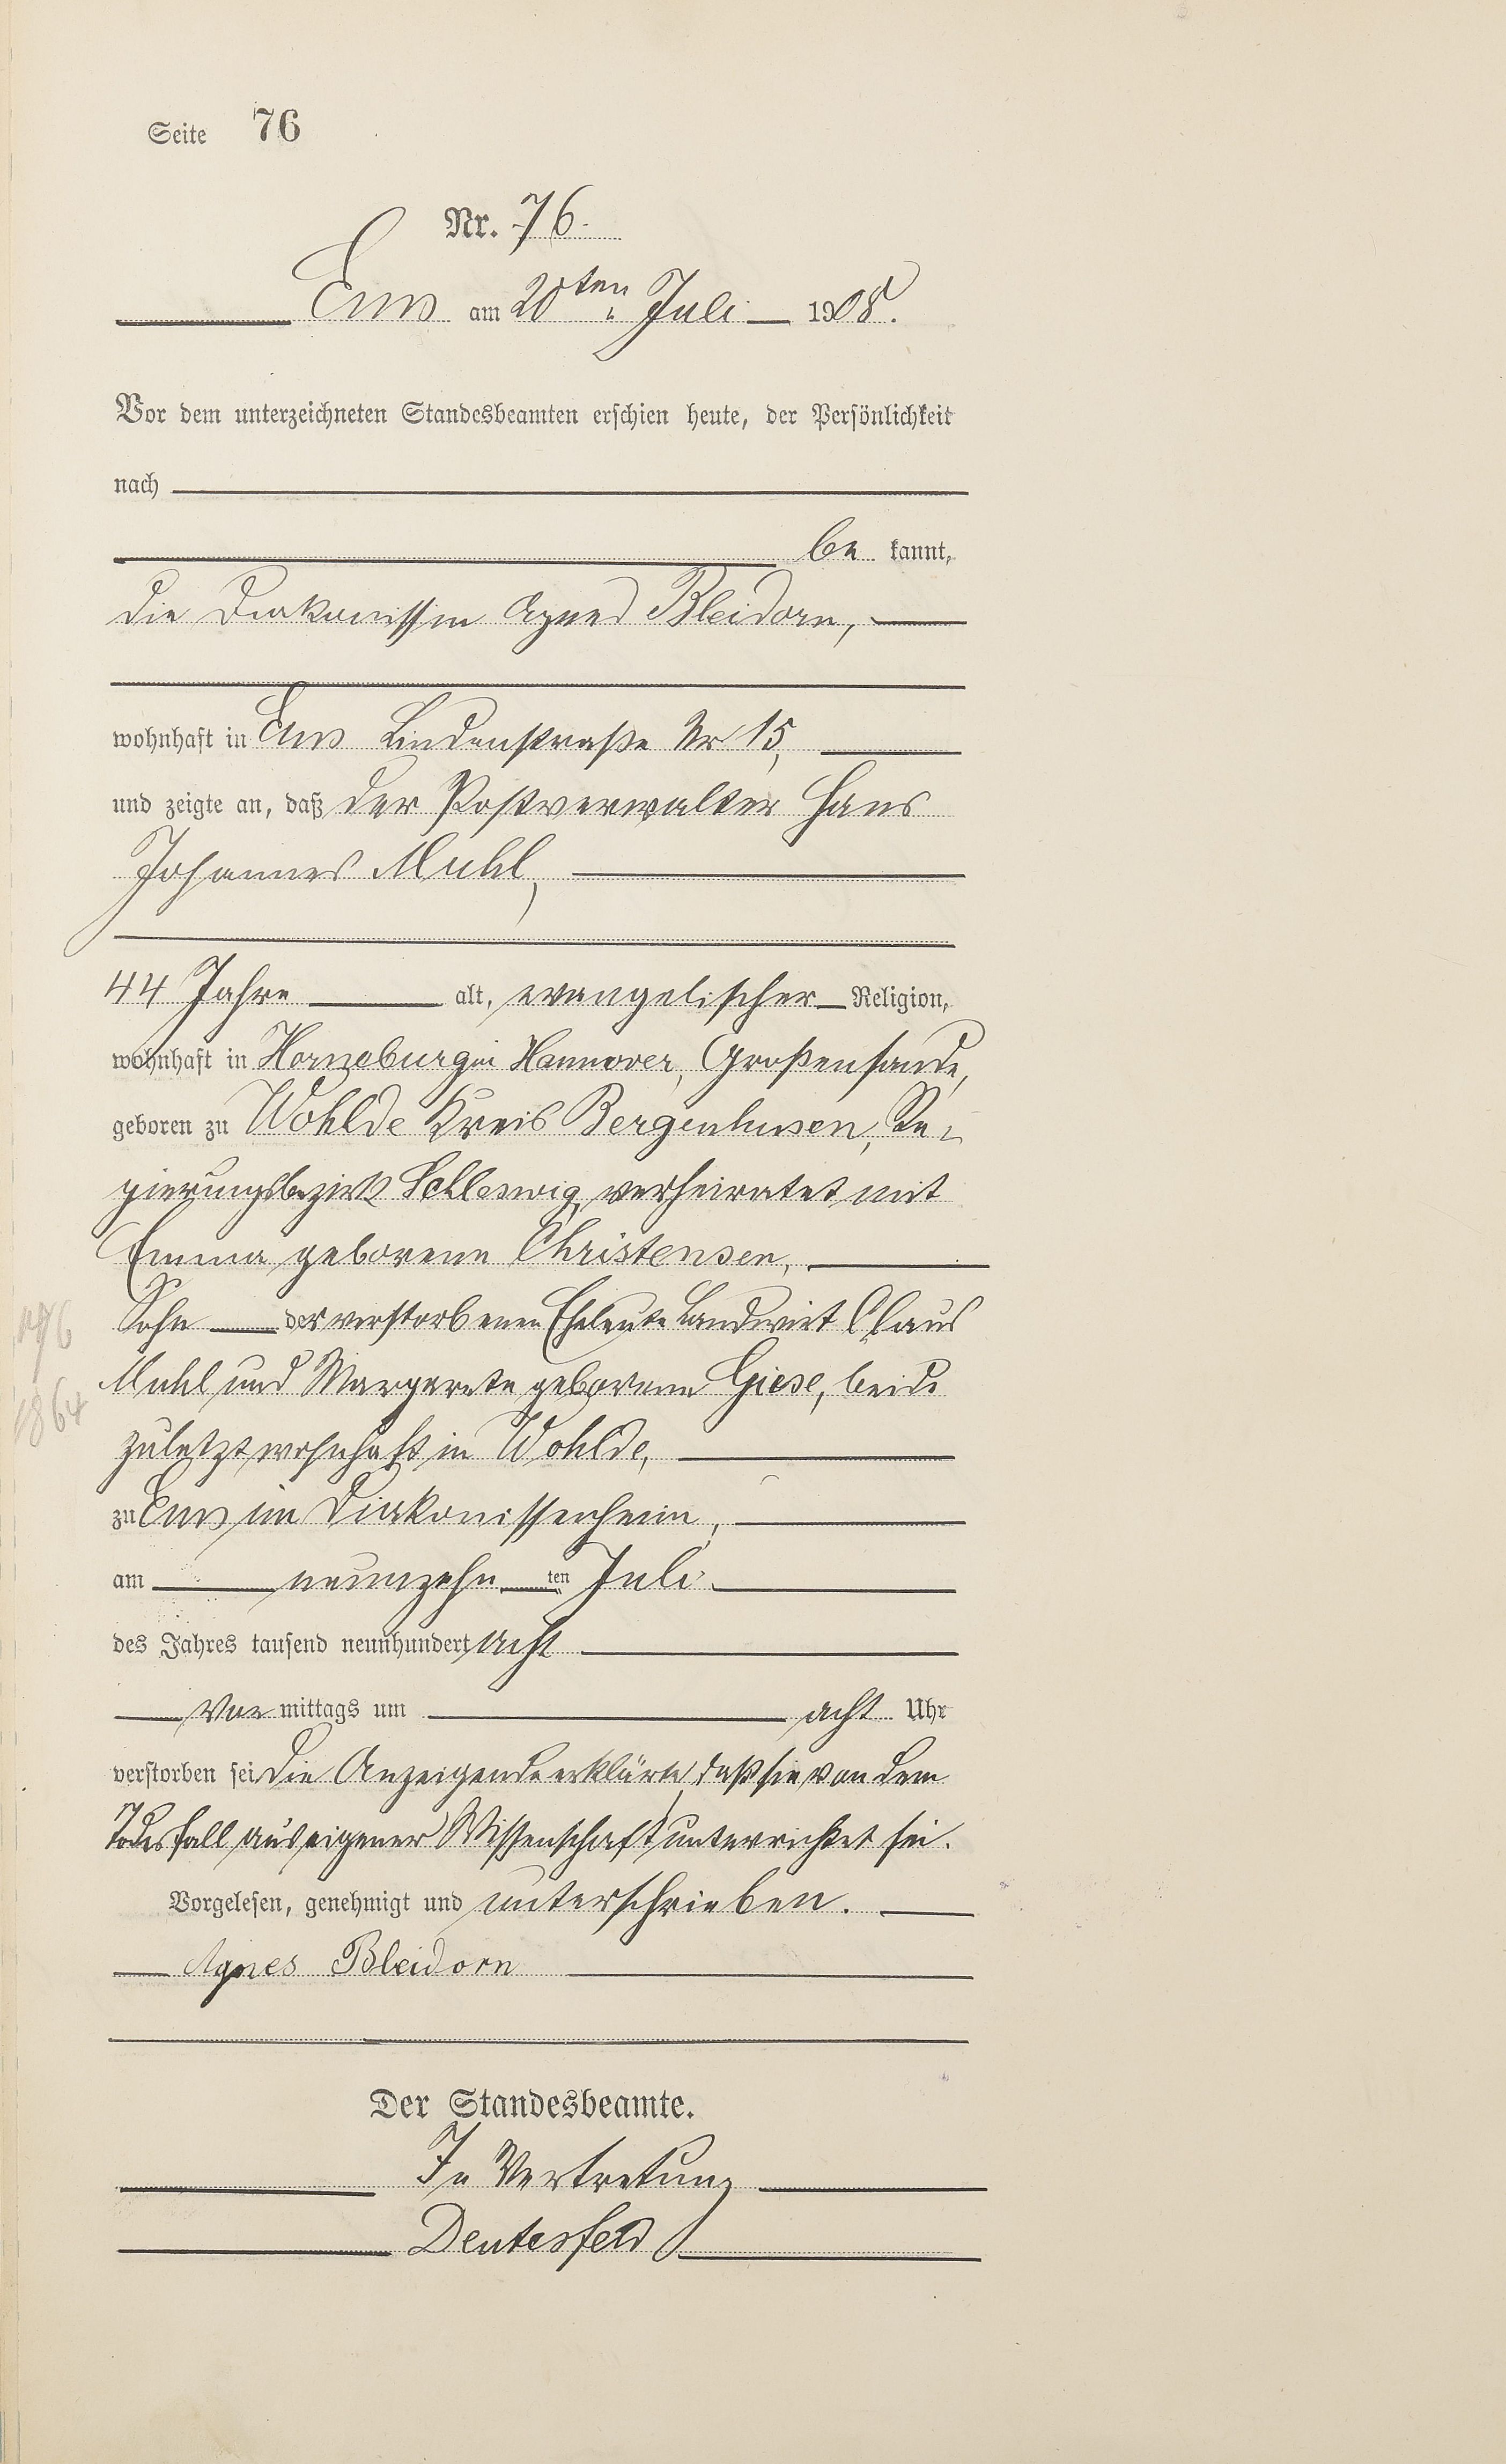 Seite 76
Nr. 76.
Ems am 20ten Juli 1908.
Vor dem unterzeichneten Standesbeamten erschien heute, der Persönlichkeit
nach
be kannt,
die Diakonissin Agnes Bleidorn,
wohnhaft in Ems Lindenstraße Nr 15,
und zeigte an, daß der Postverwalter Hans
Johannes Muhl,
44 Jahre alt, evangelischer Religion,
wohnhaft in Horneburg in Hannover, Großensande,
geboren zu Wohlde Kreis Bergenhusen, Re-
gierungsbezirk Schleswig, verheiratet mit
Emma geborene Christensen,
Sohn der verstorbenen Eheleute Landwirt Claus
Muhl und Margarete geborene Giese, beide
zuletzt wohnhaft in Wohlde,
zu Ems im Diakonissenheim,
am neunzehn ten Juli
des Jahres tausend neunhundert acht
Vor mittags um acht Uhr
verstorben sei. Die Anzeigende erklärte, daß sie von dem
Todesfall aus eigener Wissenschaft unterrichtet sei.
Vorgelesen, genehmigt und unterschrieben.
Agnes Bleidorn
Der Standesbeamte.
In Vertretung
1864